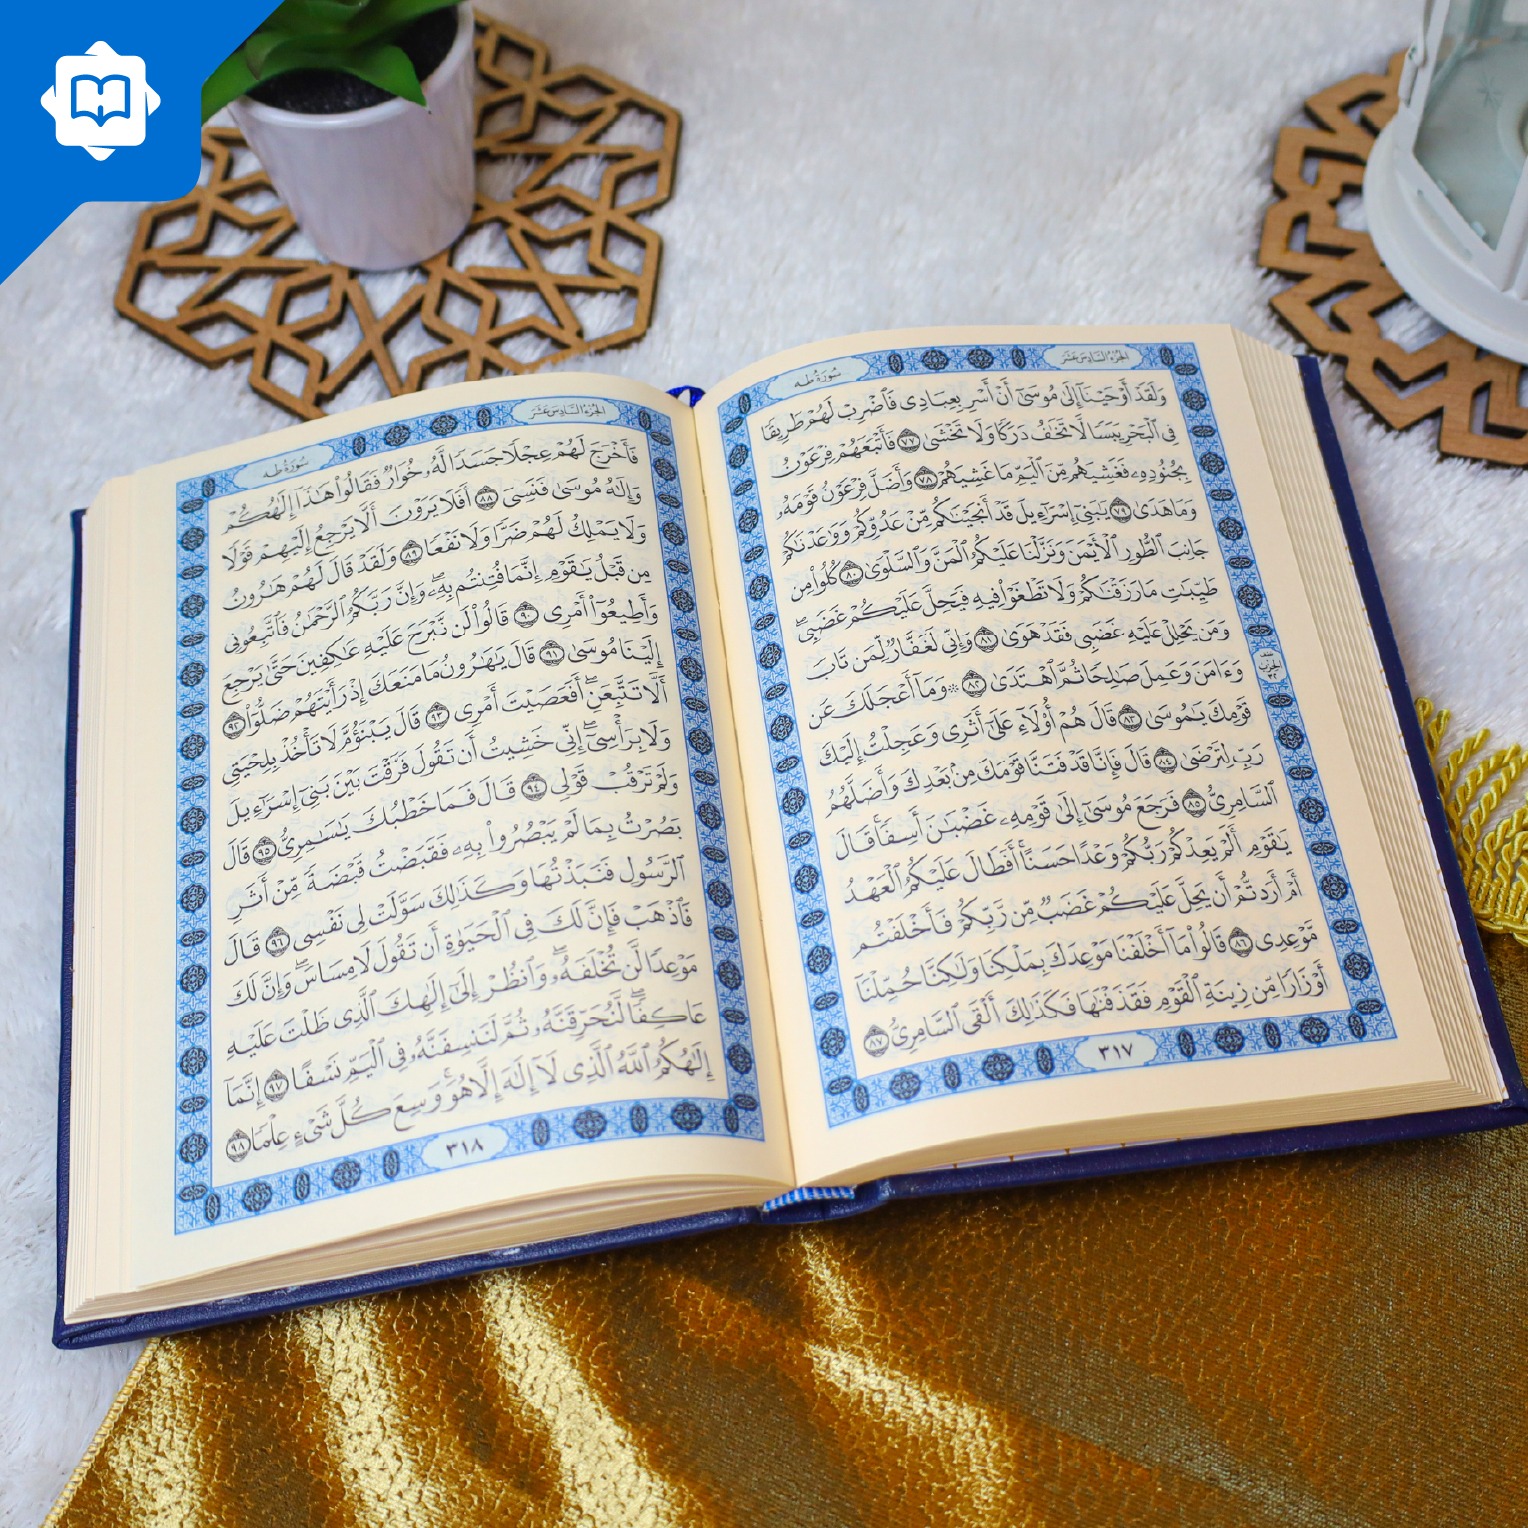 سُورَةُ طه
الجُزْءُ السَّادِسَ عَشَرَ
وَلَقَدْ أَوْحَيْنَآ إِلَىٰ مُوسَىٰٓ أَنْ أَسْرِ بِعِبَادِى فَٱضْرِبْ لَهُمْ طَرِيقًا
فِى ٱلْبَحْرِ يَبَسًا لَّا تَخَٰفُ دَرَكًا وَلَا تَخْشَىٰ ٧٧ فَأَتْبَعَهُمْ فِرْعَوْنُ
بِجُنُودِهِۦ فَغَشِيَهُم مِّنَ ٱلْيَمِّ مَا غَشِيَهُمْ ٧٨ وَأَضَلَّ فِرْعَوْنُ قَوْمَهُۥ
وَمَا هَدَىٰ ٧٩ يَٰبَنِىٓ إِسْرَٰٓءِيلَ قَدْ أَنجَيْنَٰكُم مِّنْ عَدُوِّكُمْ وَوَٰعَدْنَٰكُمْ
جَانِبَ ٱلطُّورِ ٱلْأَيْمَنَ وَنَزَّلْنَا عَلَيْكُمُ ٱلْمَنَّ وَٱلسَّلْوَىٰ ٨٠ كُلُوا۟ مِن
طَيِّبَٰتِ مَا رَزَقْنَٰكُمْ وَلَا تَطْغَوْا۟ فِيهِ فَيَحِلَّ عَلَيْكُمْ غَضَبِى ۖ
وَمَن يَحْلِلْ عَلَيْهِ غَضَبِى فَقَدْ هَوَىٰ ٨١ وَإِنِّى لَغَفَّارٌ لِّمَن تَابَ
وَءَامَنَ وَعَمِلَ صَٰلِحًا ثُمَّ ٱهْتَدَىٰ ٨٢ ۞ وَمَآ أَعْجَلَكَ عَن
قَوْمِكَ يَٰمُوسَىٰ ٨٣ قَالَ هُمْ أُو۟لَآءِ عَلَىٰٓ أَثَرِى وَعَجِلْتُ إِلَيْكَ
رَبِّ لِتَرْضَىٰ ٨٤ قَالَ فَإِنَّا قَدْ فَتَنَّا قَوْمَكَ مِنۢ بَعْدِكَ وَأَضَلَّهُمُ
ٱلسَّامِرِىُّ ٨٥ فَرَجَعَ مُوسَىٰٓ إِلَىٰ قَوْمِهِۦ غَضْبَٰنَ أَسِفًا ۚ قَالَ
يَٰقَوْمِ أَلَمْ يَعِدْكُمْ رَبُّكُمْ وَعْدًا حَسَنًا ۚ أَفَطَالَ عَلَيْكُمُ ٱلْعَهْدُ
أَمْ أَرَدتُّمْ أَن يَحِلَّ عَلَيْكُمْ غَضَبٌ مِّن رَّبِّكُمْ فَأَخْلَفْتُم
مَّوْعِدِى ٨٦ قَالُوا۟ مَآ أَخْلَفْنَا مَوْعِدَكَ بِمَلْكِنَا وَلَٰكِنَّا حُمِّلْنَآ
أَوْزَارًا مِّن زِينَةِ ٱلْقَوْمِ فَقَذَفْنَٰهَا فَكَذَٰلِكَ أَلْقَى ٱلسَّامِرِىُّ ٨٧
٣١٧
سُورَةُ طه
الجُزْءُ السَّادِسَ عَشَرَ
فَأَخْرَجَ لَهُمْ عِجْلًا جَسَدًا لَّهُۥ خُوَارٌ فَقَالُوا۟ هَٰذَآ إِلَٰهُكُمْ
وَإِلَٰهُ مُوسَىٰ فَنَسِىَ ٨٨ أَفَلَا يَرَوْنَ أَلَّا يَرْجِعُ إِلَيْهِمْ قَوْلًا
وَلَا يَمْلِكُ لَهُمْ ضَرًّا وَلَا نَفْعًا ٨٩ وَلَقَدْ قَالَ لَهُمْ هَٰرُونُ
مِن قَبْلُ يَٰقَوْمِ إِنَّمَا فُتِنتُم بِهِۦ ۖ وَإِنَّ رَبَّكُمُ ٱلرَّحْمَٰنُ فَٱتَّبِعُونِى
وَأَطِيعُوٓا۟ أَمْرِى ٩٠ قَالُوا۟ لَن نَّبْرَحَ عَلَيْهِ عَٰكِفِينَ حَتَّىٰ يَرْجِعَ
إِلَيْنَا مُوسَىٰ ٩١ قَالَ يَٰهَٰرُونُ مَا مَنَعَكَ إِذْ رَأَيْتَهُمْ ضَلُّوٓا۟ ٩٢
أَلَّا تَتَّبِعَنِ ۖ أَفَعَصَيْتَ أَمْرِى ٩٣ قَالَ يَبْنَؤُمَّ لَا تَأْخُذْ بِلِحْيَتِى
وَلَا بِرَأْسِىٓ ۖ إِنِّى خَشِيتُ أَن تَقُولَ فَرَّقْتَ بَيْنَ بَنِىٓ إِسْرَٰٓءِيلَ
وَلَمْ تَرْقُبْ قَوْلِى ٩٤ قَالَ فَمَا خَطْبُكَ يَٰسَٰمِرِىُّ ٩٥ قَالَ
بَصُرْتُ بِمَا لَمْ يَبْصُرُوا۟ بِهِۦ فَقَبَضْتُ قَبْضَةً مِّنْ أَثَرِ
ٱلرَّسُولِ فَنَبَذْتُهَا وَكَذَٰلِكَ سَوَّلَتْ لِى نَفْسِى ٩٦ قَالَ
فَٱذْهَبْ فَإِنَّ لَكَ فِى ٱلْحَيَوٰةِ أَن تَقُولَ لَا مِسَاسَ ۖ وَإِنَّ لَكَ
مَوْعِدًا لَّن تُخْلَفَهُۥ ۖ وَٱنظُرْ إِلَىٰٓ إِلَٰهِكَ ٱلَّذِى ظَلْتَ عَلَيْهِ
عَاكِفًا ۖ لَّنُحَرِّقَنَّهُۥ ثُمَّ لَنَنسِفَنَّهُۥ فِى ٱلْيَمِّ نَسْفًا ٩٧ إِنَّمَآ
إِلَٰهُكُمُ ٱللَّهُ ٱلَّذِى لَآ إِلَٰهَ إِلَّا هُوَ ۚ وَسِعَ كُلَّ شَىْءٍ عِلْمًا ٩٨
٣١٨